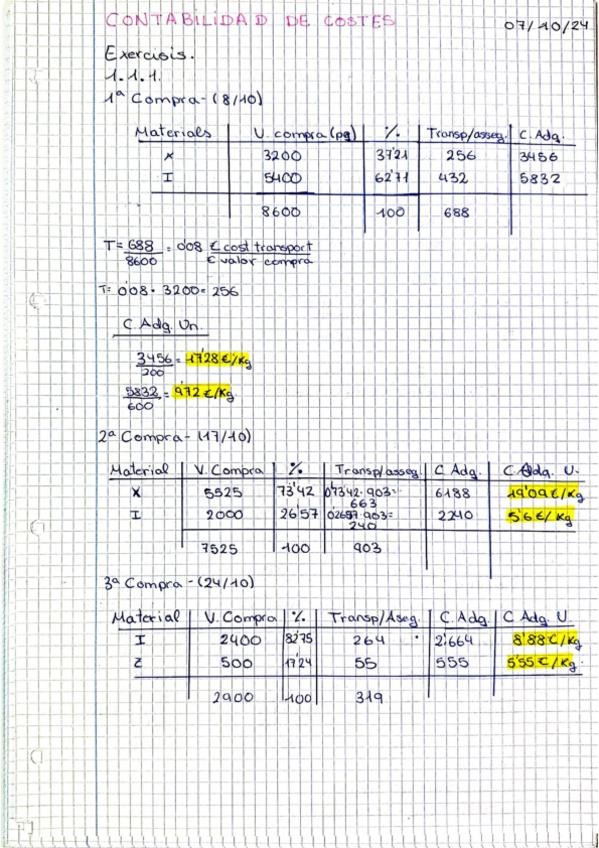 CONTABILIDAD DE COSTES
07/10/24
Exercisis.
1.1.1.
1ª Compra - (8/10)
Materials V. compra (pq) % Transp/asseg. C. Adq.
X 3200 37'21 256 3456
I 5400 62'71 432 5832
8600 100 688
T = 688 = 0'08 € cost transport
8600 € valor compra
T = 0'08 · 3200 = 256
C. Adq. Un.
3456 = 17'28 €/kg
200
5832 = 9'72 €/kg
600
2ª Compra - (17/10)
Material V. Compra % Transp/asseg. C. Adq. C. Adq. U.
X 5525 73'42 0'7342 · 903 = 6188 19'04 €/kg
663
I 2000 26'57 0'2657 · 903 = 2240 5'6 €/kg
240
7525 100 903
3ª Compra - (24/10)
Material V. Compra % Transp/Aseg. C. Adq. C Adq. U.
I 2400 82'75 264 2'664 8'88 €/kg
Z 500 17'24 55 555 5'55 €/kg
2900 100 319